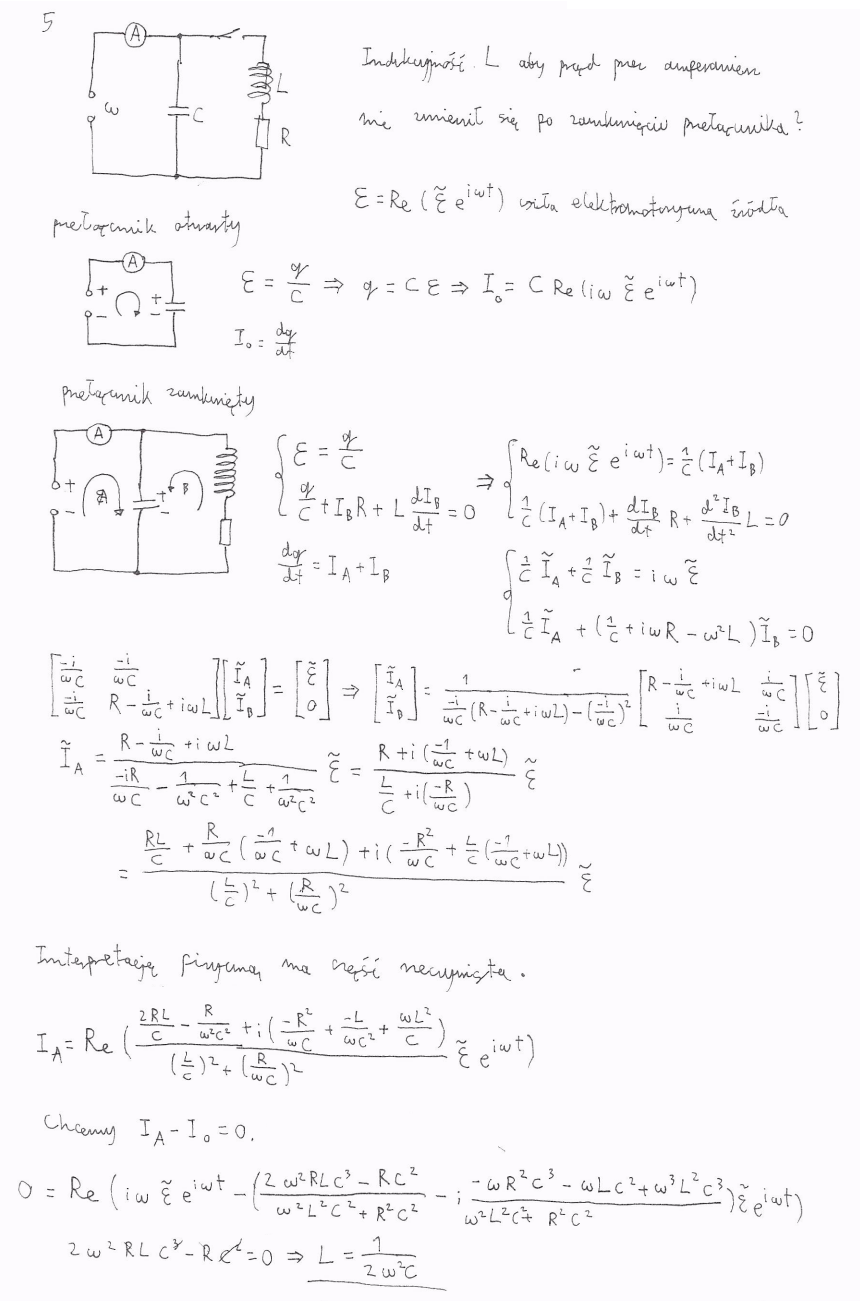 5
A
ω
C
L
R
Indukcyjność L aby prąd przez amperomierz
nie zmienił się po zamknięciu przełącznika?
ℰ = Re (ℰ̃ e^{iωt}) siła elektromotoryczna źródła
przełącznik otwarty
A
+
-
+
-
ℰ = q/C ⇒ q = Cℰ ⇒ I₀ = C Re(iω ℰ̃ e^{iωt})
I₀ = dq/dt
przełącznik zamknięty
A
+
-
A
+
-
B
{ ℰ = q/C ⇒ { Re(iω ℰ̃ e^{iωt}) = 1/C (I_A + I_B)
q/C + I_B R + L dI_B/dt = 0 1/C (I_A + I_B) + dI_B/dt R + d²I_B/dt² L = 0
dq/dt = I_A + I_B { 1/C Ĩ_A + 1/C Ĩ_B = iω ℰ̃
1/C Ĩ_A + (1/C + iωR - ω²L) Ĩ_B = 0
[-i/ωC -i/ωC; -i/ωC R - i/ωC + iωL] [Ĩ_A; Ĩ_B] = [ℰ̃; 0] ⇒ [Ĩ_A; Ĩ_B] = 1/(-i/ωC (R - i/ωC + iωL) - (-i/ωC)²) [R - i/ωC + iωL i/ωC; i/ωC -i/ωC] [ℰ̃; 0]
Ĩ_A = (R - i/ωC + iωL)/(-iR/ωC - 1/ω²C² + L/C + 1/ω²C²) ℰ̃ = (R + i(-1/ωC + ωL))/(L/C + i(-R/ωC)) ℰ̃
= (RL/C + R/ωC (-1/ωC + ωL) + i(-R²/ωC + L/C (-1/ωC + ωL)))/((L/C)² + (R/ωC)²) ℰ̃
Interpretację fizyczną ma część rzeczywista.
I_A = Re ((2RL/C - R/ω²C² + i(-R²/ωC + -L/ωC² + ωL²/C))/((L/C)² + (R/ωC)²) ℰ̃ e^{iωt})
Chcemy I_A - I₀ = 0.
0 = Re (iω ℰ̃ e^{iωt} - ((2ω²RLC³ - RC²)/(ω²L²C² + R²C²) - i (-ωR²C³ - ωLC² + ω³L²C³)/(ω²L²C² + R²C²)) ℰ̃ e^{iωt})
2ω²RLC³ - RC² = 0 ⇒ L = 1/(2ω²C)